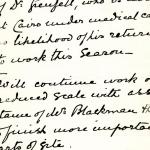 of Dr. Grenfell, who is
at Cairo under medical ca
is likelihood of his return
to work this Season —
Will continue work o
reduced scale with ass
tance of Mr Blackman
finish more important
arts of site.